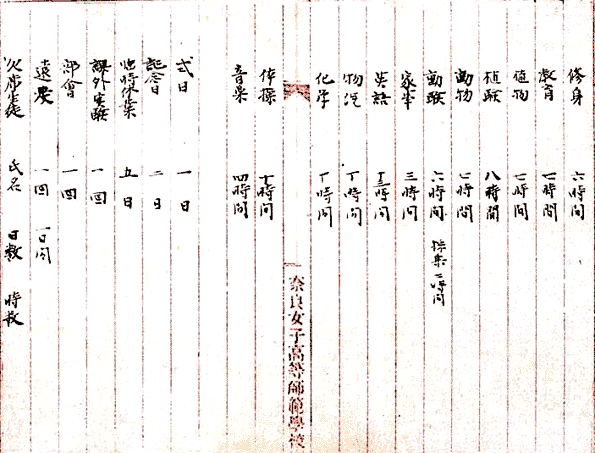 修身 六時間
教育 一時間
植物 七時間
植験 八時間
動物 七時間
動験 六時間 採集二時間
家事 三時間
英語 時間
物況 丁時間
化学 丁時間
奈良女子高等師範學校
体操 十時間
音楽 四時間
式日 一日
記念日 二日
臨時休業 五日
課外実験 一回
部會 一回
遠慶 一回 一日間
欠席生徒 氏名 日数 時数